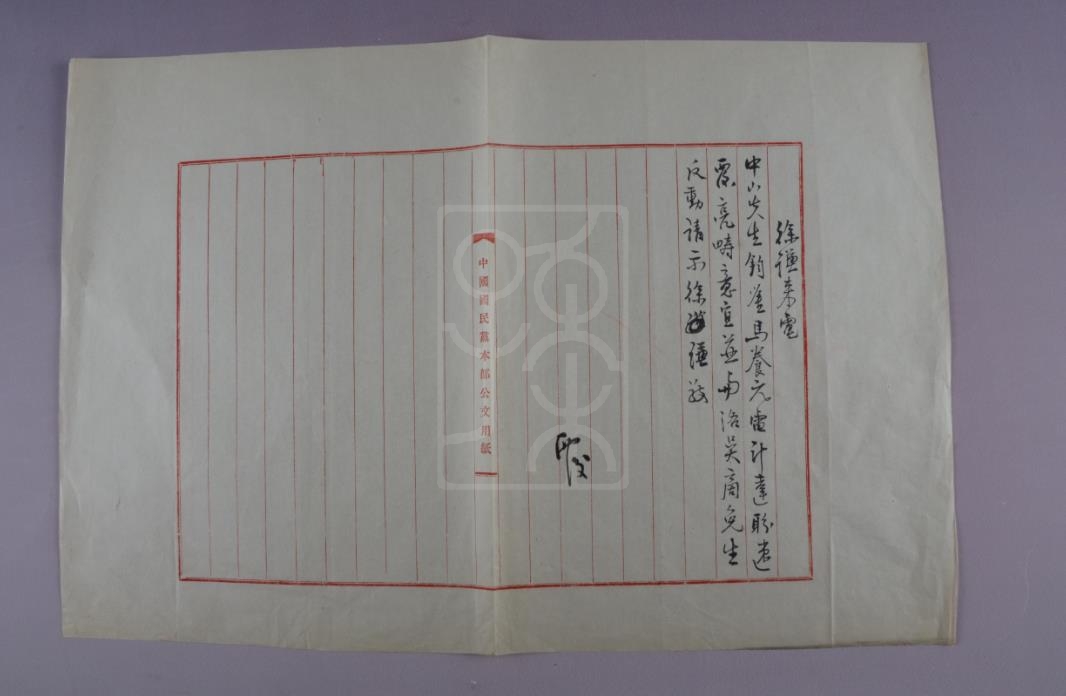 徐謙來電
中山先生鈞鑒馬養元電計達盼速
覆亮疇意宜並與洛吳商免生
反動請示徐謙敬
中國國民黨本部公文用紙